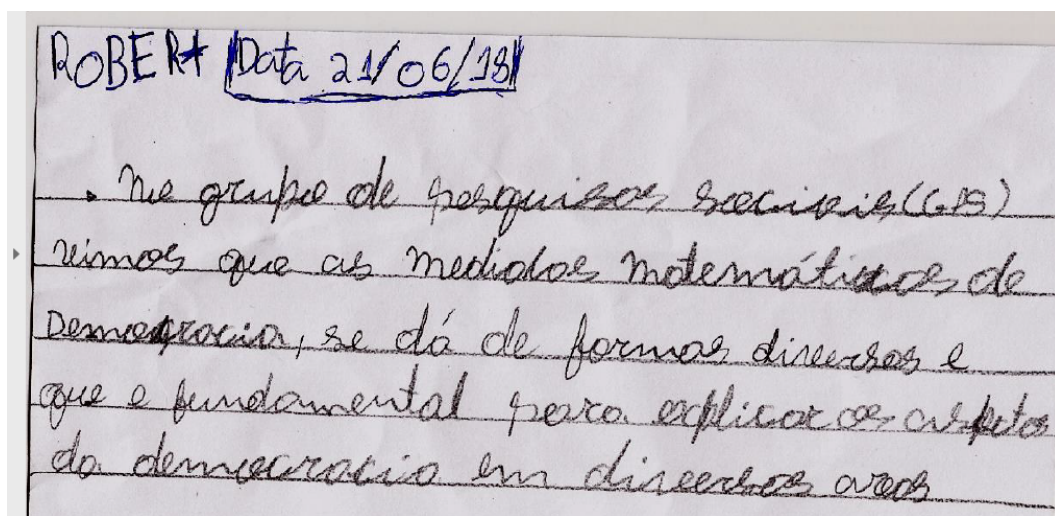 ROBERT Data 21/06/18
. No grupo de pesquisas sociais (GPS)
vimos que as medidas matemáticas de
Democracia, se dá de formas diversas e
que e fundamental para explicar os aspetos
da democracia em diversas areas